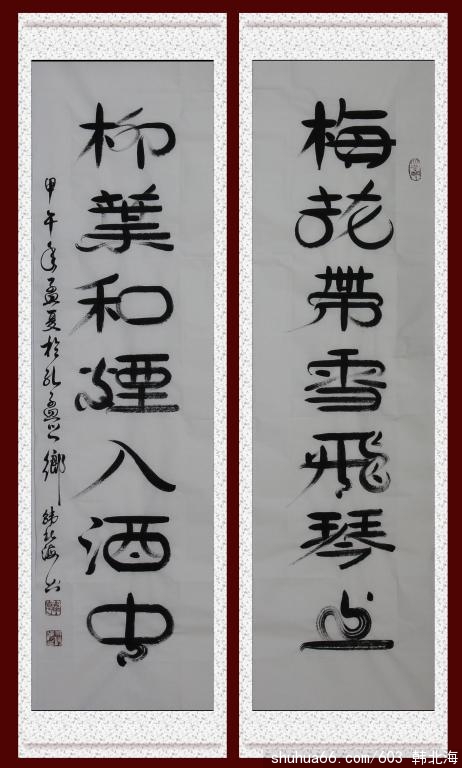 梅花帶雪飛琴上
柳葉和煙入酒中
甲午年孟夏於孔孟之鄉 韩北海书
shuhua66.com/603 韩北海